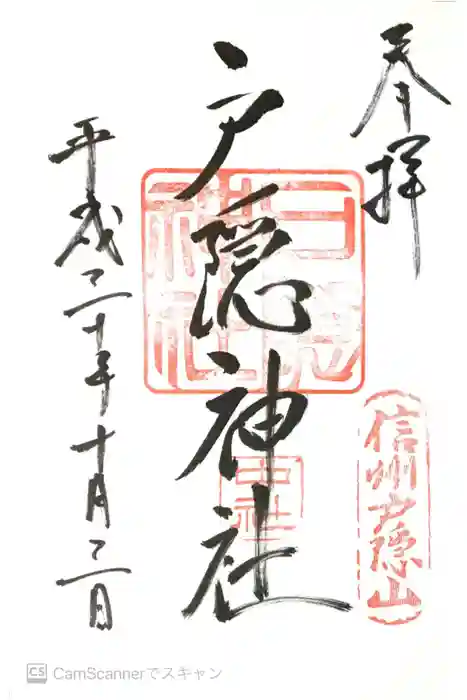 奉拝
戸隠神社
戸隠神社
中社
信州戸隠山
平成二十年十月二日
CS CamScannerでスキャン